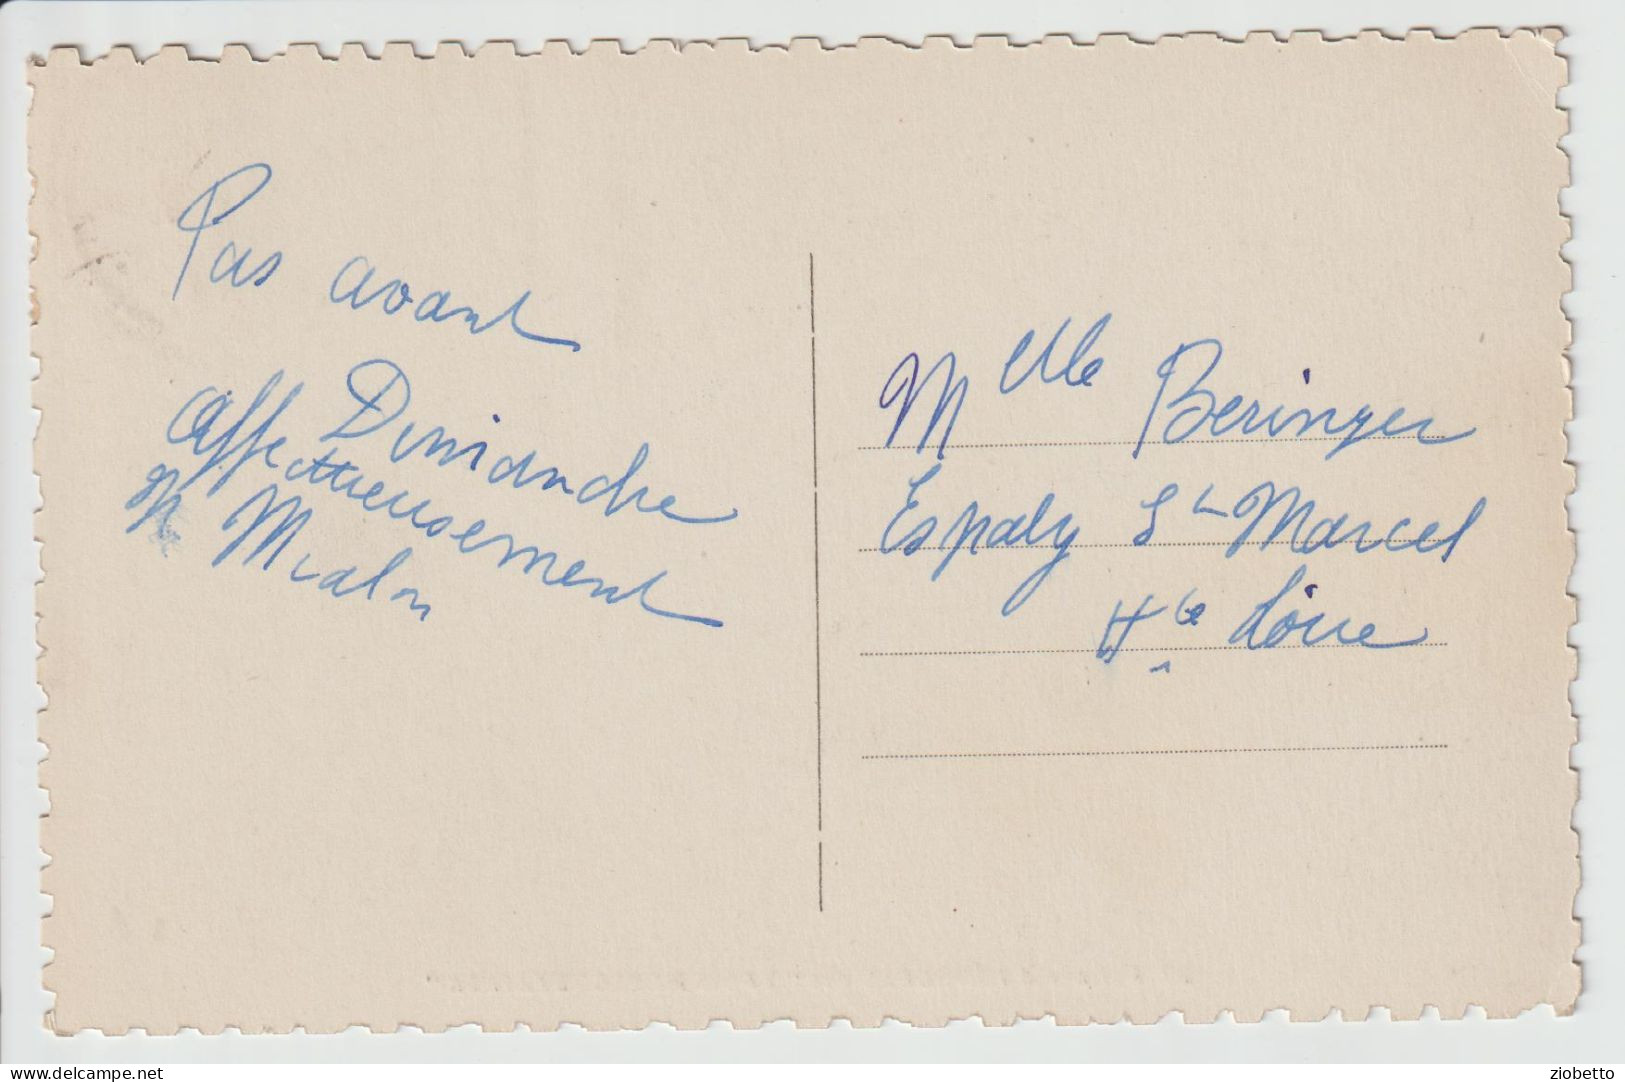 Pas avant
Dimanche
Affectueusement
Mialon
Melle Beringer
Espaly St Marcel
Hte Loire
delcampe.net
ziobetto